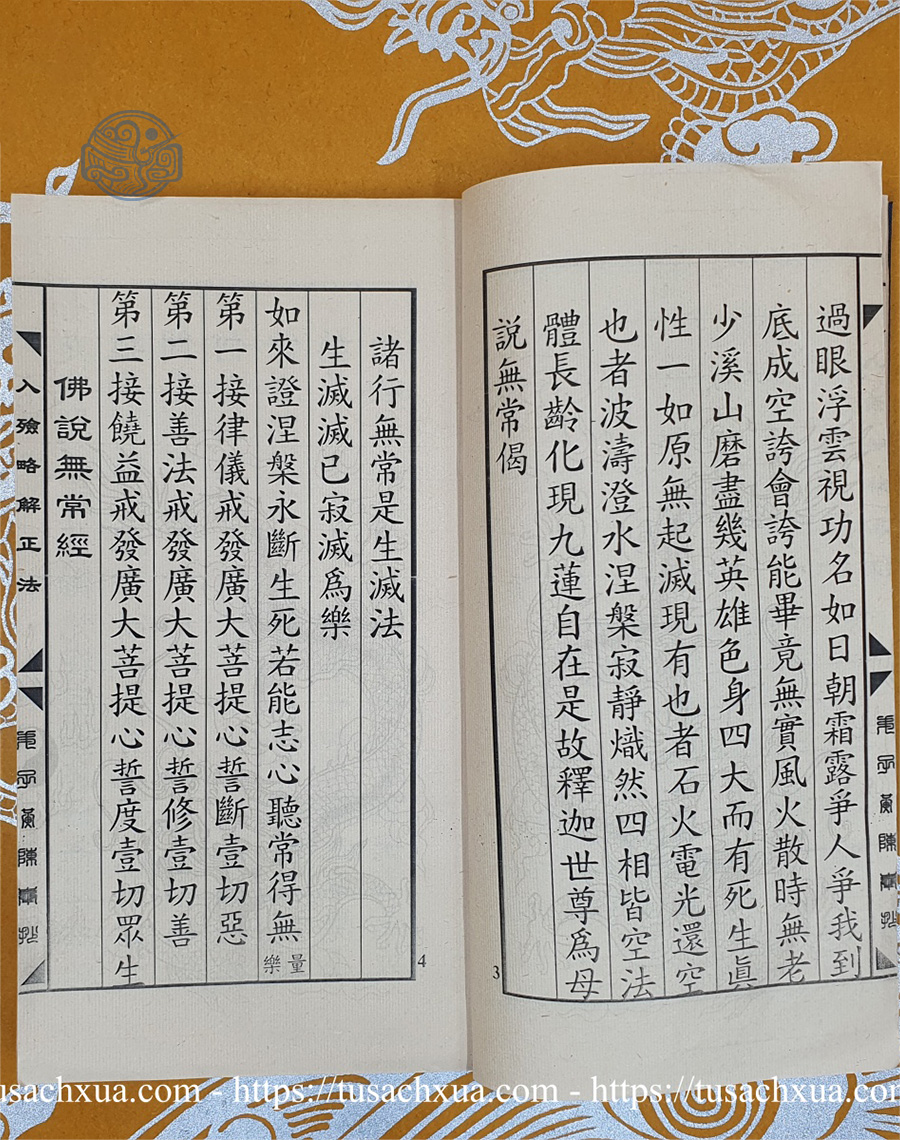 過眼浮雲視功名如日朝霜露爭人爭我到
底成空誇會誇能畢竟無實風火散時無老
少溪山磨盡幾英雄色身四大而有死生眞
性一如原無起滅現有也者石火電光還空
也者波濤澄水涅槃寂靜熾然四相皆空法
體長齡化現九蓮自在是故釋迦世尊爲母
説無常偈
3
諸行無常是生滅法
生滅滅已寂滅爲樂
如來證涅槃永斷生死若能志心聽常得無量樂
第一接律儀戒發廣大菩提心誓斷壹切惡
第二接善法戒發廣大菩提心誓修壹切善
第三接饒益戒發廣大菩提心誓度壹切眾生
佛說無常經
4
入殮略解正法
usachxua.com - https://tusachxua.com - https://tusachxua.com